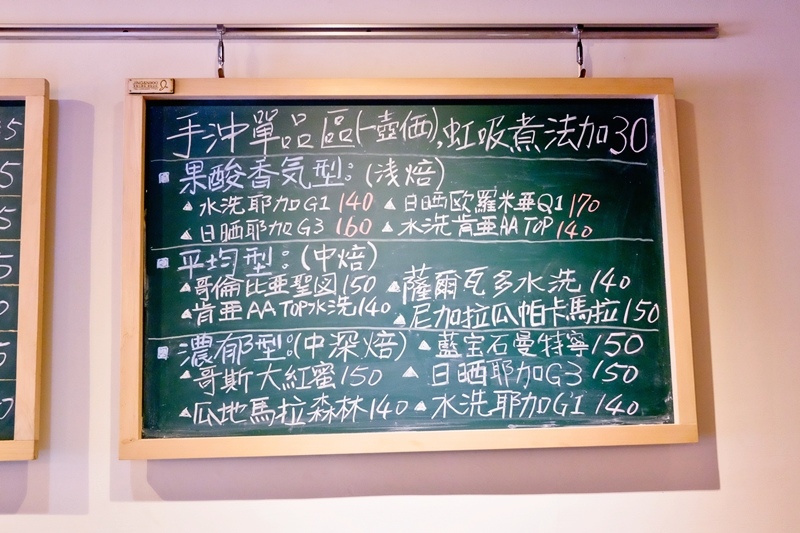 手沖單品區(一壺価),虹吸煮法加30
果酸香気型:(浅焙)
▲水洗耶加G1 140 ▲日晒欧羅米亜Q1 170
▲日晒耶加G3 160 ▲水洗肯亜AA TOP 140
平均型:(中焙)
▲哥倫比亜聖図150 ▲薩爾瓦多水洗 140
▲肯亜AA TOP水洗140 ▲尼加拉瓜帕卡馬拉150
濃郁型:(中深焙) ▲藍宝石曼特寧150
▲哥斯大紅蜜150 ▲日晒耶加G3 150
▲瓜地馬拉森林140 ▲水洗耶加G1 140
5
5
5
5
0
5
0